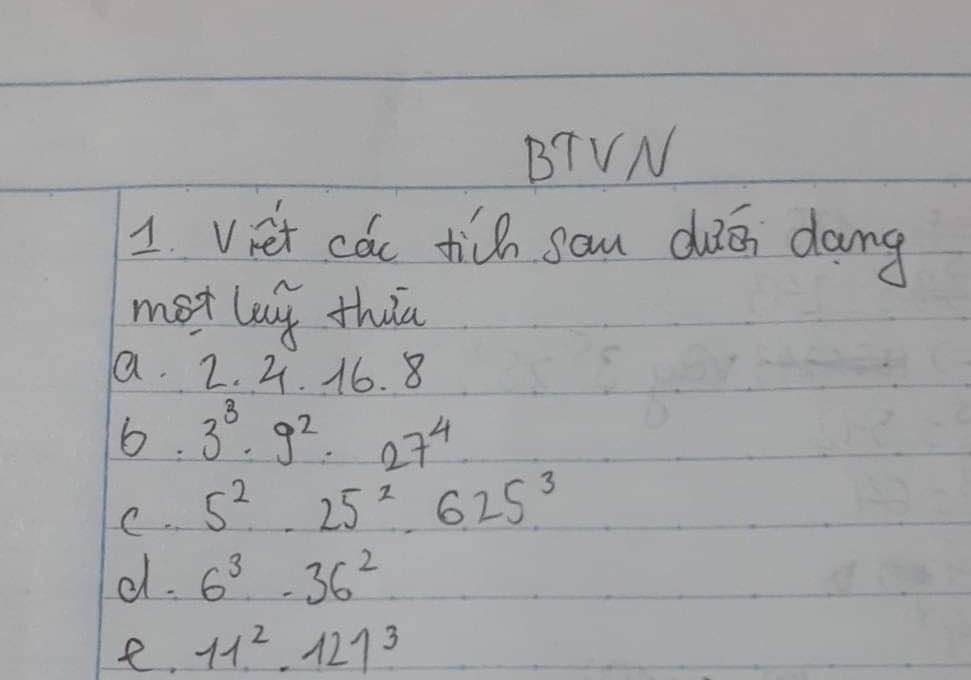 BTVN
1. Viết các tích sau dưới dạng
một luỹ thừa
a. 2.4.16.8
b. 3³. 9². 27⁴
c. 5². 25². 625³
d. 6³. 36²
e. 11². 121³